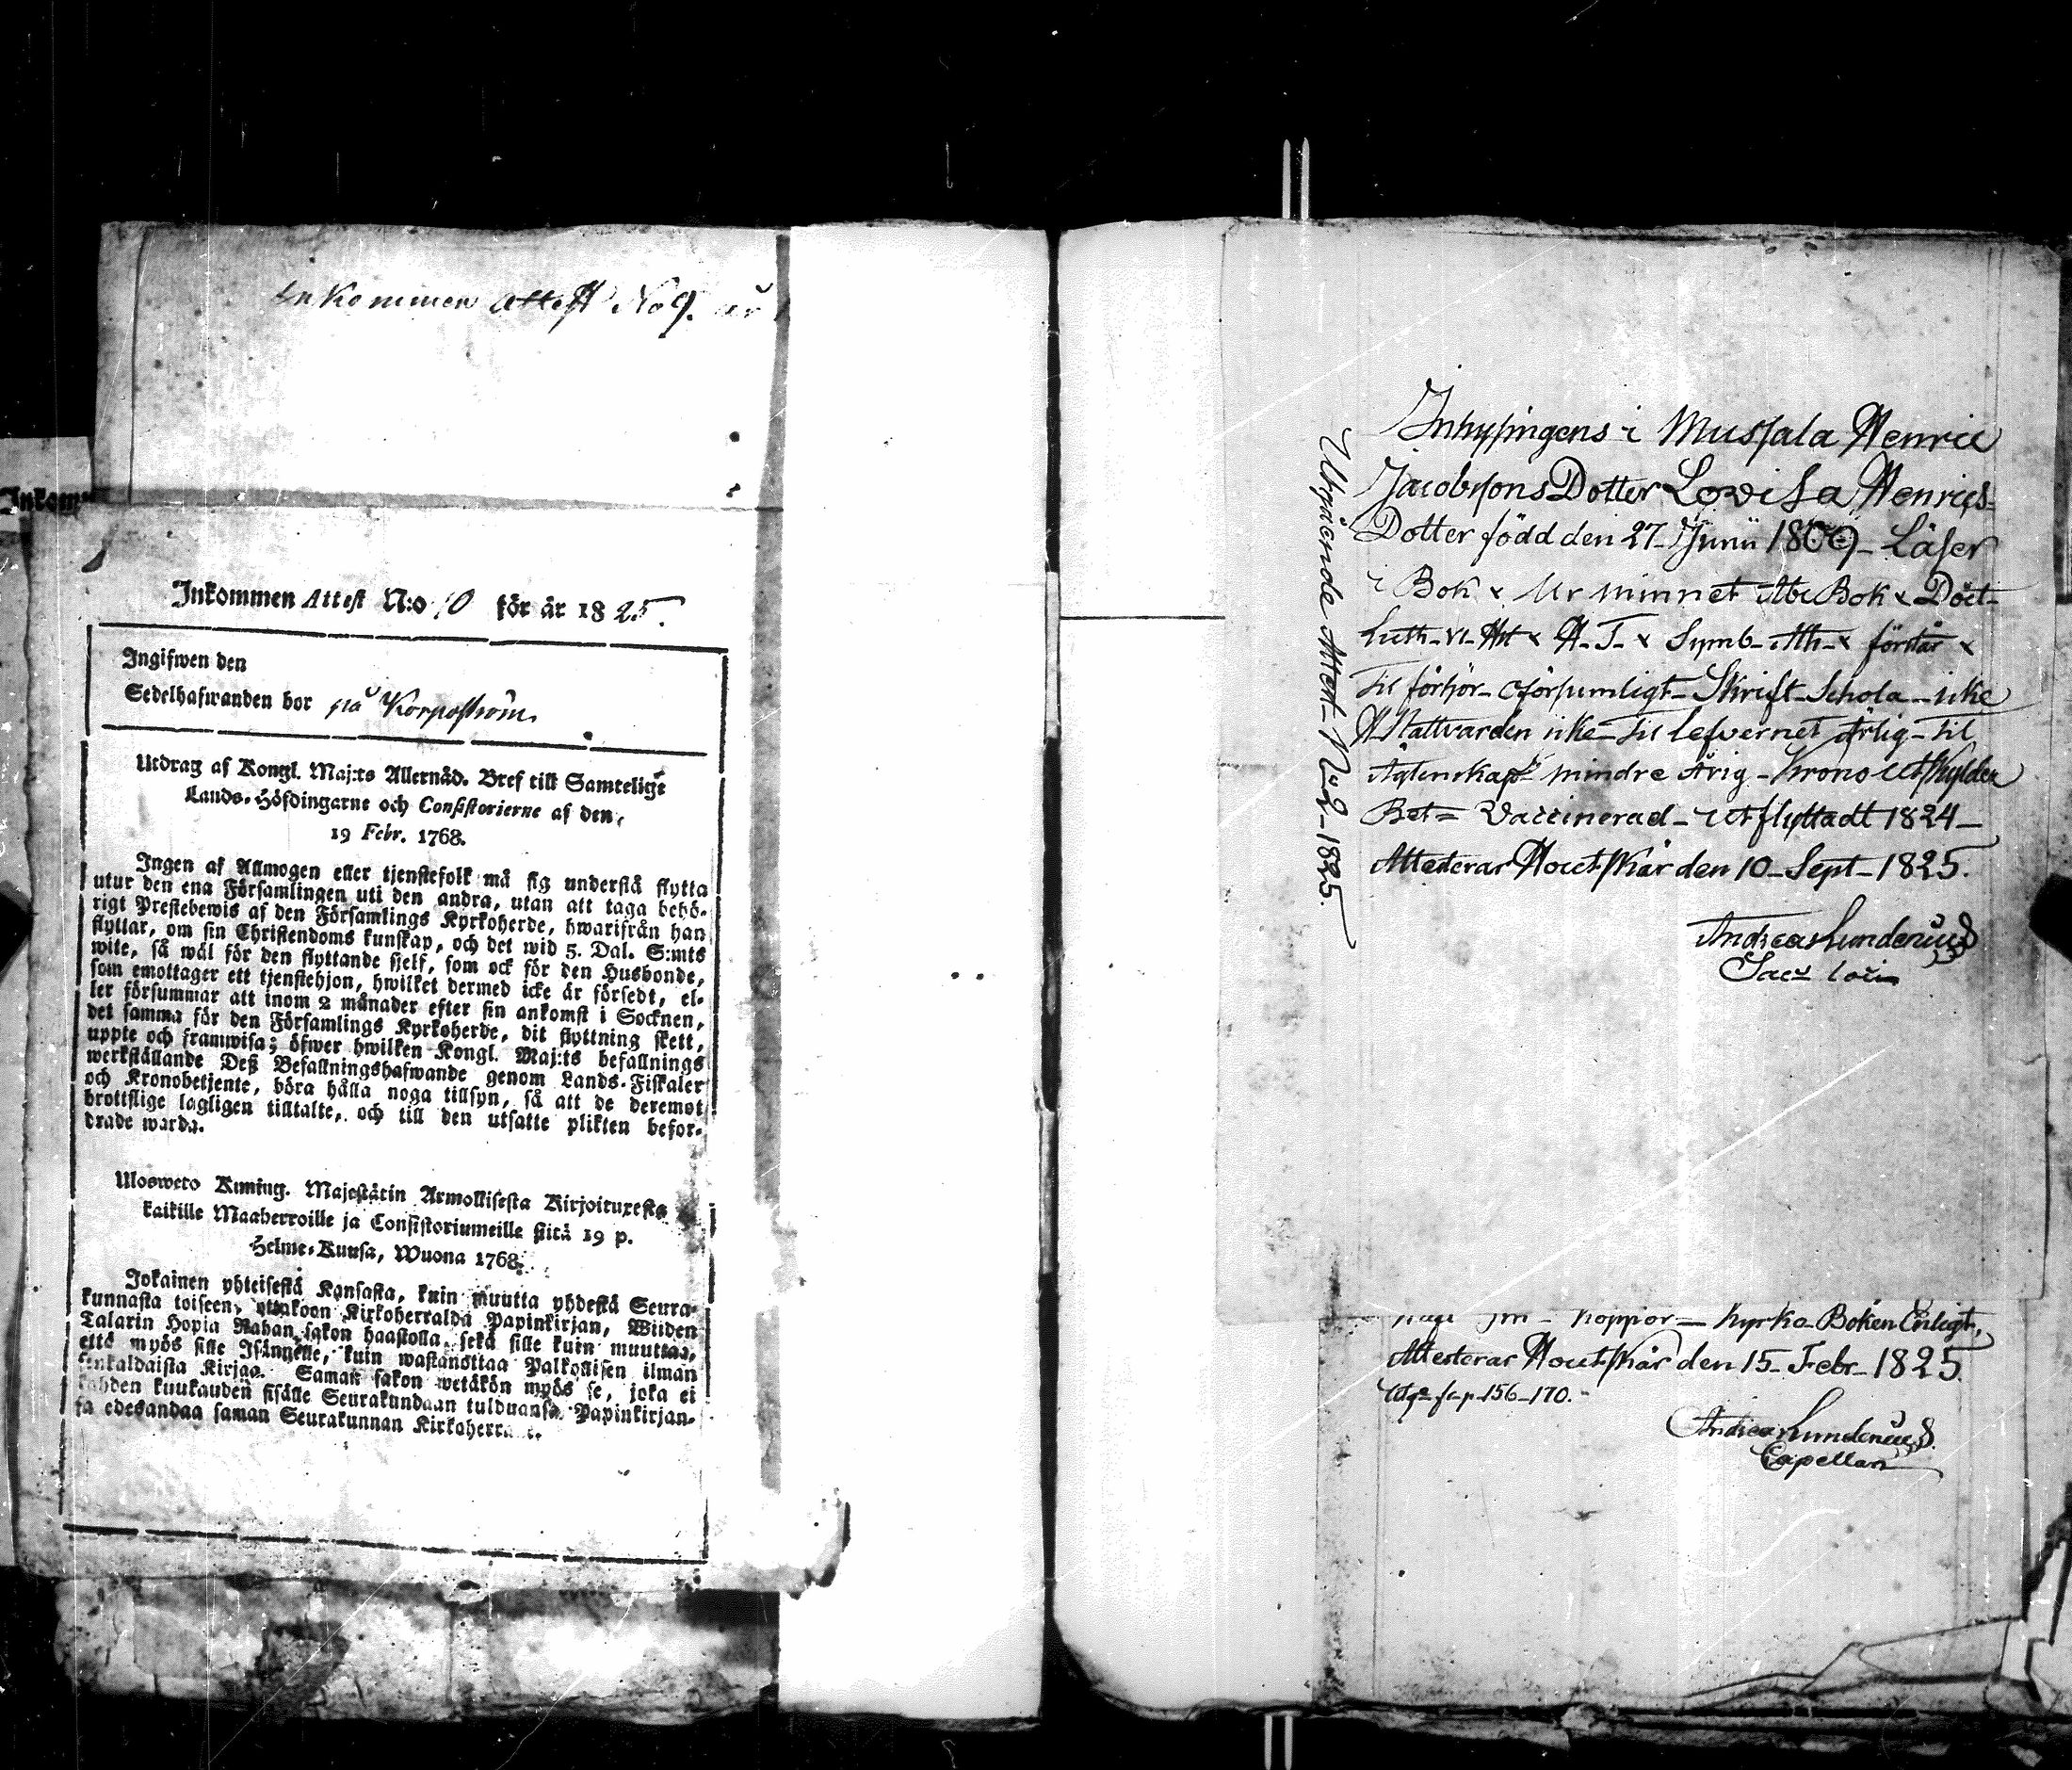 Inkommen Attest No 9. år
Inkom
Inkommen Attest N:o 10 för år 1825.
Ingifwen den
Sedelhafwanden bor på Korpoström.
Utdrag af Kongl. Maj:ts Allernåd. Bref till Samtelige
Lands-Höfdingarne och Consistorierne af den
19 Febr. 1768.
Ingen af Allmogen eller tjenstefolk må sig understå flytta
utur den ena Församlingen uti den andra, utan att taga behö-
rigt Prestebewis af den Församlings Kyrkoherde, hwarifrån han
flyttar, om sin Christendoms kunskap, och det wid 5. Dal. S:mts
wite, så wäl för den flyttande sjelf, som ock för den Husbonde,
som emottager ett tjenstehjon, hwilket dermed icke är försedt, el-
ler försummar att inom 2 månader efter sin ankomst i Socknen,
det samma för den Församlings Kyrkoherde, dit flyttning skett,
uppte och framwisa; öfwer hwilken Kongl. Maj:ts befallnings
werkställande Deß Befallningshafwande genom Lands-Fiskaler
och Kronobetjente, böra hålla noga tillsyn, så att de deremot
brottslige lagligen tilltalte, och till den utsatte plikten befor-
drade warda.
Ulosweto Kuning. Majestätin Armollisesta Kirjoituxesta
kaikille Maaherroille ja Consistoriumeille siitä 19 p.
Helme-Kuusa, Wuona 1768.
Jokainen yhteisestä Kansasta, kuin muutta yhdestä Seura-
kunnasta toiseen, ottakoon Kirkoherralda Papinkirjan, Wiiden
Talarin Hopia Rahan sakon haastolla, sekä sille kuin muuttaa,
että myös sille Isännelle, kuin wastanottaa Palkollisen ilman
senkaldaista Kirjaa. Saman sakon wetäkön myös se, joka ei
kahden kuukauden sisälle Seurakundaan tulduansa, Papinkirjan-
sa edesandaa saman Seurakunnan Kirkoherralle.
Inhysingens i Mussala Henric
Jacobsons Dotter Lovisa Henrics-
Dotter född den 27 Junii 1809 - Läser
i Bok x Ur minnet Abc Bok x Döct-
Luth- x H. T. x Symb- Ath- x förstår x
Til förhör- oförsumligt- Skrift-Schola - icke
H Nattvarden icke - Til lefvernet Ärlig - Til
Ägtenskap mindre Årig - Krono Utskylder
Bet= Vaccinerad - Utflyttadt 1824 -
Attesterar Houtskär den 10 - Sept - 1825.
Andreas Lundenius
Utgående Attest - N:o 2 - 1825.
Koppor - Kyrko-Boken Enligt,
Attesterar Houtskär den 15 - Febr - 1825.
156-170.
Andreas Lundenius
Capellan